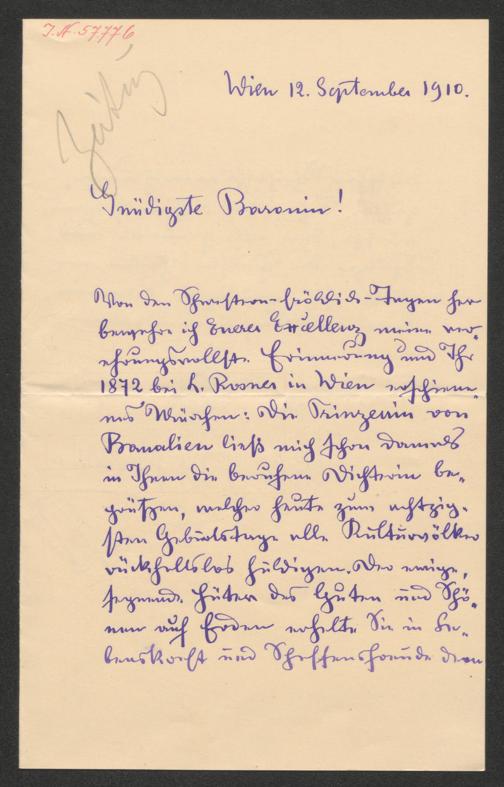 I.N. 57776
Wien 12. September 1910.
Gnädigste Baronin!
Von den Schwestern-Fröhlich-Tagen her
bewahre ich Euerer Excellenz meine ver-
ehrungsvollste Erinnerung und Ihr
1872 bei L. Rosner in Wien erschiene-
nes Märchen: Die Prinzessin von
Banalien ließ mich schon damals
in Ihnen die berufene Dichterin be-
grüßen, welcher heute zum achtzig-
sten Geburtstage alle Kulturvölker
rückhaltslos huldigen. Der ewige,
segnende Hüter des Guten und Schö-
nen auf Erden erhalte Sie in Le-
benskraft und Schaffensfreude dem